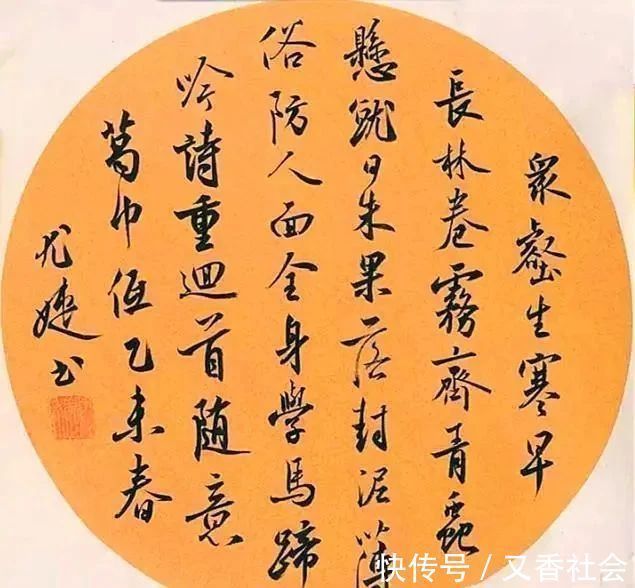 眾壑生寒早
長林卷霧齊青虫
懸就日朱果落封泥薄
俗防人面全身學馬蹄
吟詩重迴首随意
葛巾低乙未春
尤婕书
快传号 / 又香社会